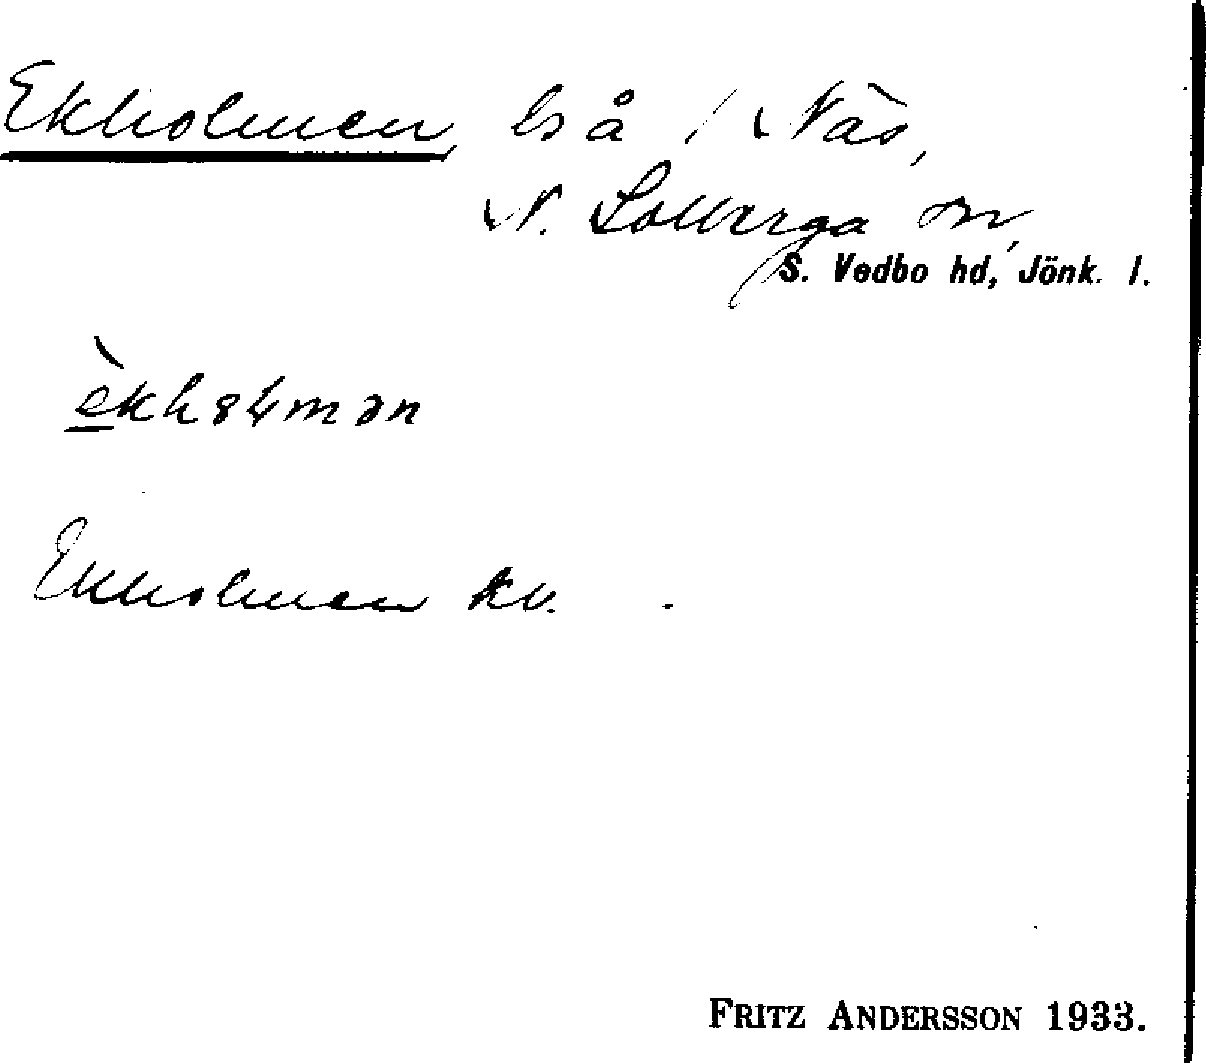 Ekholmen, bs å 1 Näs,
N. Solberga sn,
S. Vedbo hd, Jönk. l.
Ekholmen kv.
FRITZ ANDERSSON 1933.